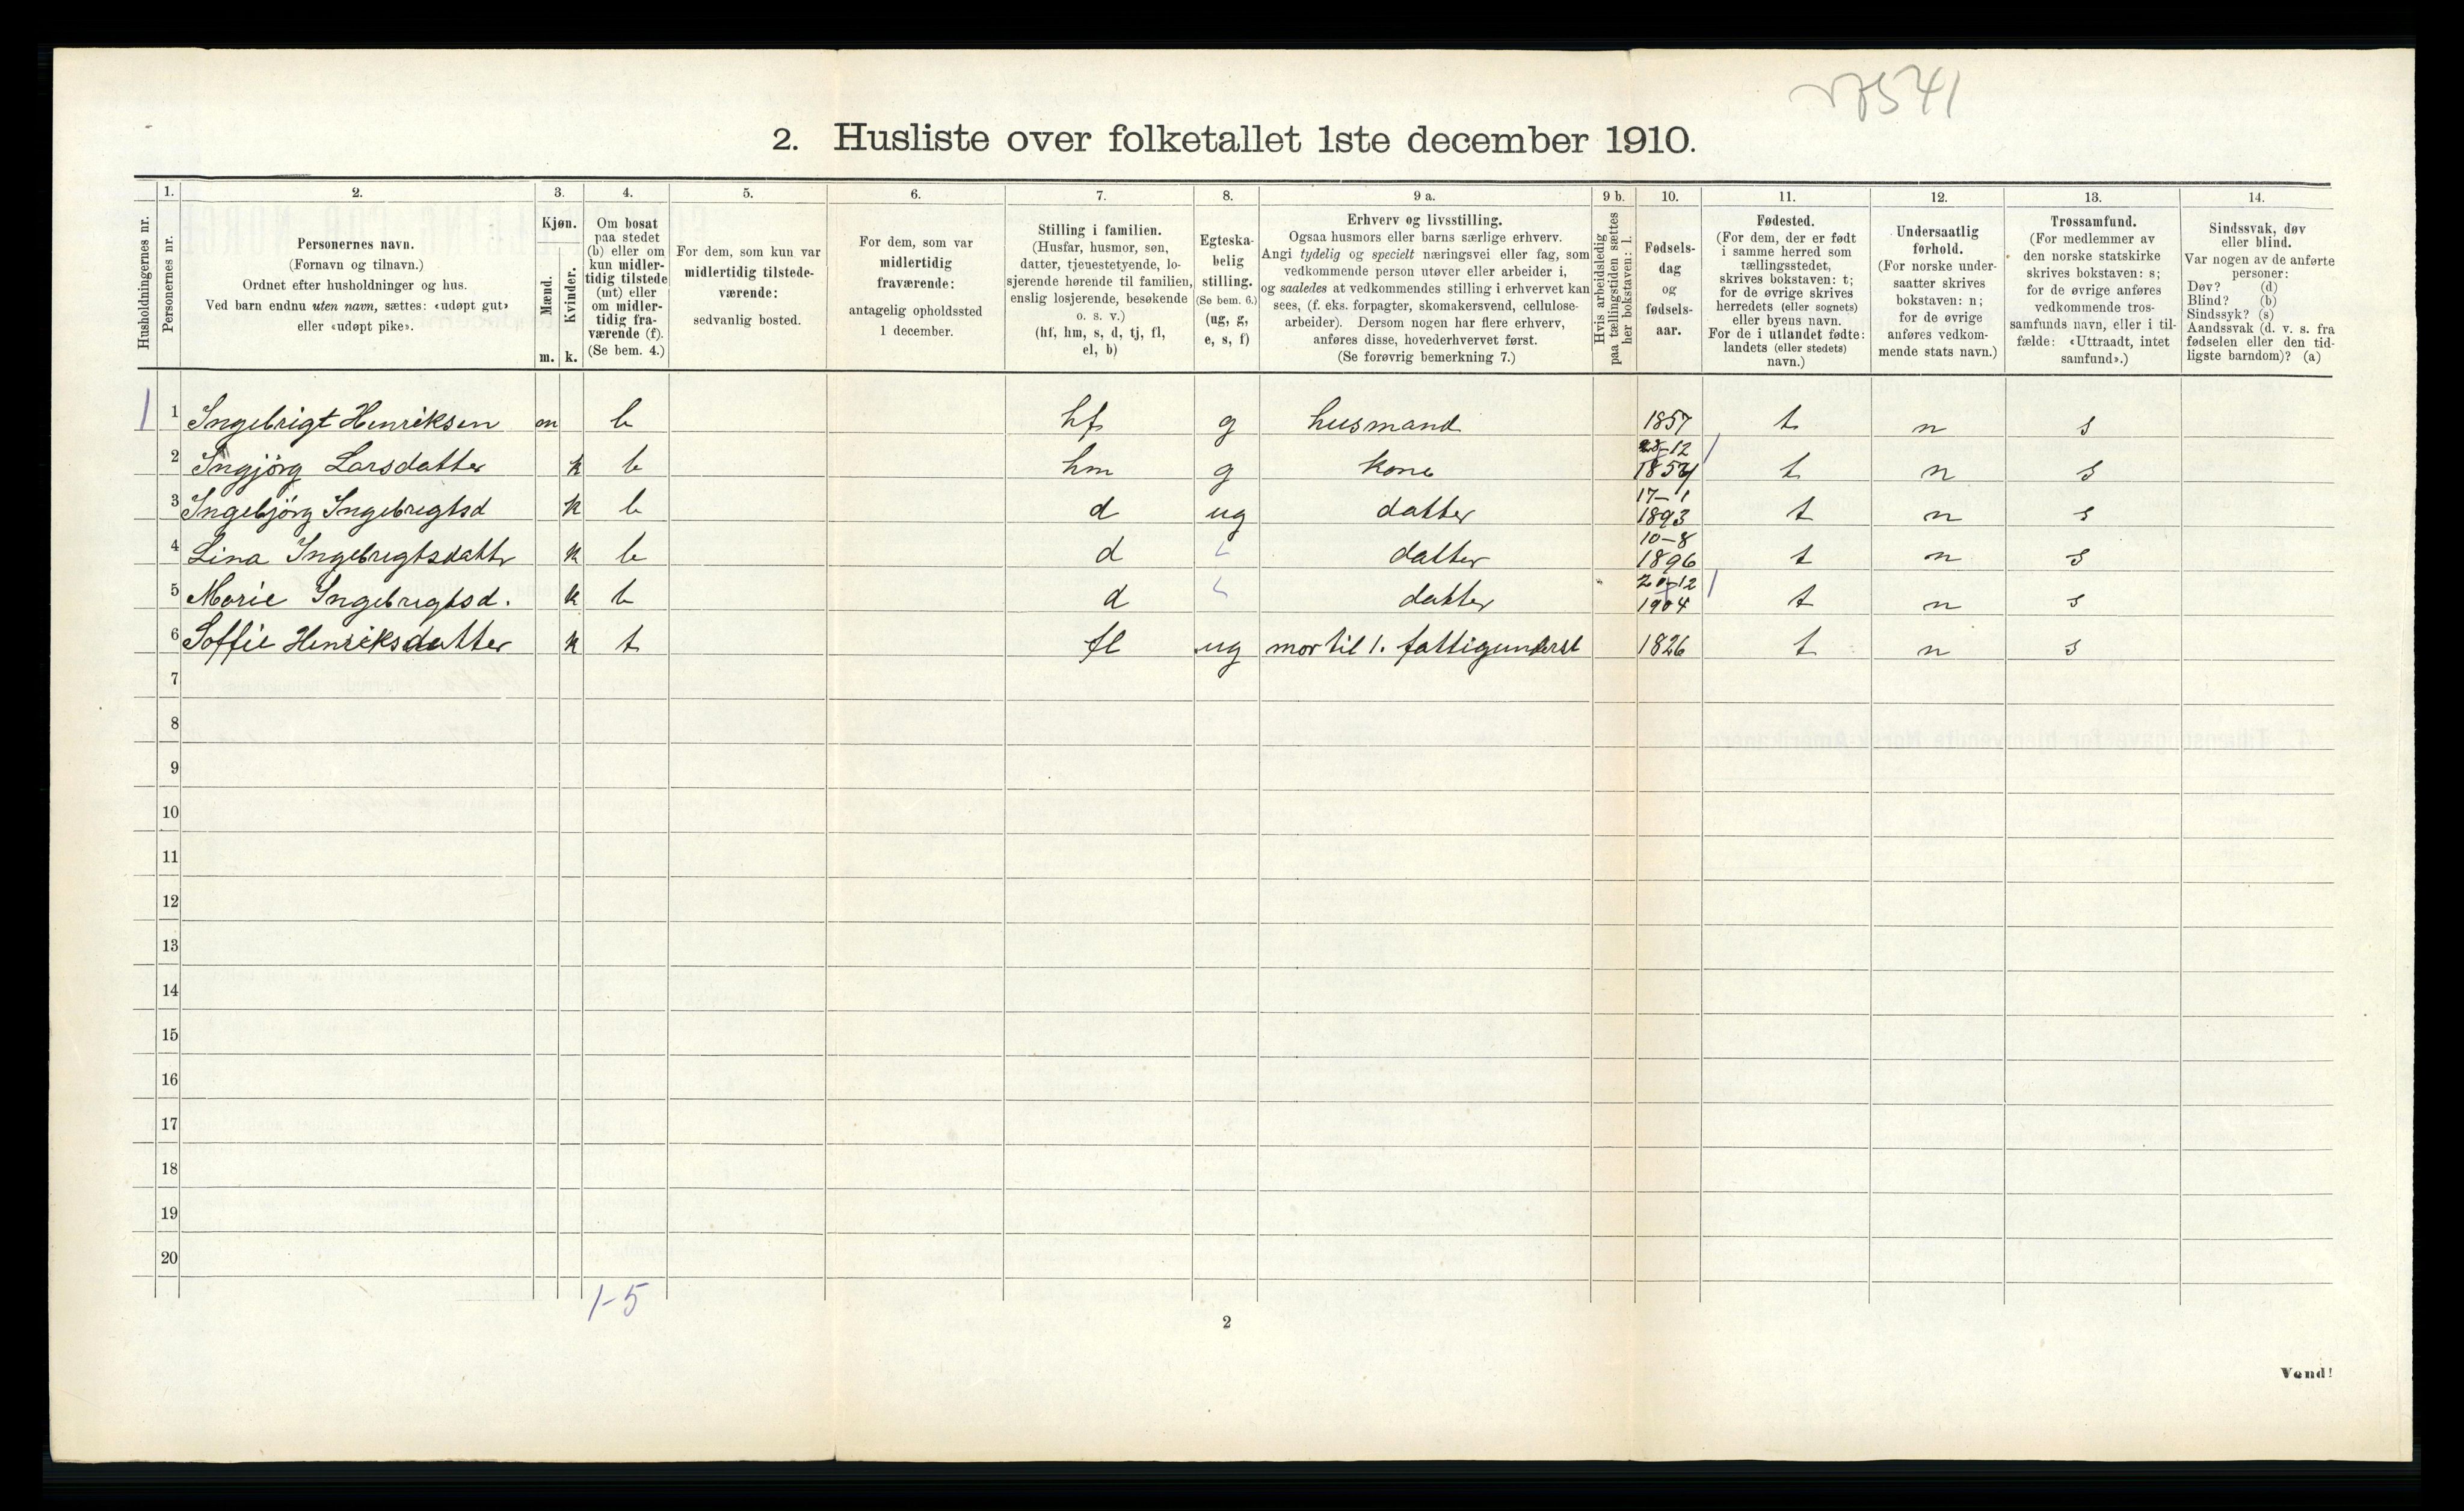 7541
2. Husliste over folketallet 1ste december 1910.
Husholdningernes nr.
1.
Personernes nr.
2.
Personernes navn.
(Fornavn og tilnavn.)
Ordnet efter husholdninger og hus.
Ved barn endnu uten navn, sættes: «udøpt gut»
eller «udøpt pike».
3.
Kjøn.
Mænd.
Kvinder.
m. k.
4.
Om bosat
paa stedet
(b) eller om
kun midler-
tidig tilstede
(mt) eller
om midler-
tidig fra-
værende (f).
(Se bem. 4.)
5.
For dem, som kun var
midlertidig tilstede-
værende:
sedvanlig bosted.
6.
For dem, som var
midlertidig
fraværende:
antagelig opholdssted
1 december.
7.
Stilling i familien.
(Husfar, husmor, søn,
datter, tjenestetyende, lo-
sjerende hørende til familien,
enslig losjerende, besøkende
o. s. v.)
(hf, hm, s, d, tj, fl,
el, b)
8.
Egteska-
belig
stilling.
(Se bem. 6.)
(ug, g,
e, s, f)
9 a.
Erhverv og livsstilling.
Ogsaa husmors eller barns særlige erhverv.
Angi tydelig og specielt næringsvei eller fag, som
vedkommende person utøver eller arbeider i,
og saaledes at vedkommendes stilling i erhvervet kan
sees, (f. eks. forpagter, skomakersvend, cellulose-
arbeider). Dersom nogen har flere erhverv,
anføres disse, hovederhvervet først.
(Se forøvrig bemerkning 7.)
9 b.
Hvis arbeidsledig
paa tællingstiden sættes
her bokstaven: l.
10.
Fødsels-
dag
og
fødsels-
aar.
11.
Fødested.
(For dem, der er født
i samme herred som
tællingsstedet,
skrives bokstaven: t;
for de øvrige skrives
herredets (eller sognets)
eller byens navn.
For de i utlandet fødte:
landets (eller stedets)
navn.)
12.
Undersaatlig
forhold.
(For norske under-
saatter skrives
bokstaven: n;
for de øvrige
anføres vedkom-
mende stats navn.)
13.
Trossamfund.
(For medlemmer av
den norske statskirke
skrives bokstaven: s;
for de øvrige anføres
vedkommende tros-
samfunds navn, eller i til-
fælde: «Uttraadt, intet
samfund».)
14.
Sindssvak, døv
eller blind.
Var nogen av de anførte
personer:
Døv? (d)
Blind? (b)
Sindssyk? (s)
Aandssvak (d. v. s. fra
fødselen eller den tid-
ligste barndom)? (a)
1 1 Ingebrigt Henriksen m b hf g husmand 1857 t n s
2 Ingjörg Larsdatter k b hm g kone -12 1854 t n s
3 Ingebjörg Ingebrigtsd k b d ug datter 17-1 1893 t n s
4 Lina Ingebrigtsdattr k b d datter 10-8 1896 t n s
5 Marie Ingebrigtsd. k b d datter 20-12 1904 t n s
6 Soffie Henriksdatter k t fl ug mor til 1. fattigunderst 1826 t n s
7
8
9
10
11
12
13
14
15
16
17
18
19
20
1-5
2
Vend!